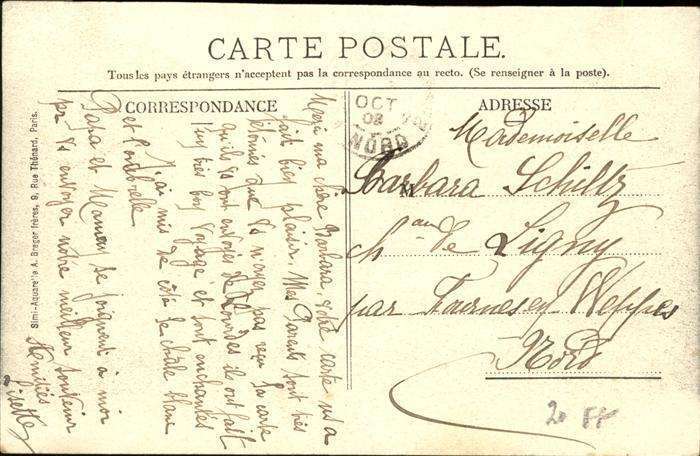 CARTE POSTALE.
Tous les pays étrangers n'acceptent pas la correspondance au recto. (Se renseigner à la poste).
CORRESPONDANCE
Merci ma chère Barbara, votre carte m'a
fait bien plaisir. Mes Parents sont très
étonnés que Vs n'ayez pas reçu la carte
qu'ils Vs ont envoyée de Lourdes ils ont fait
un très bon voyage et sont enchantés
J'ai mis de côté le châle blanc
et
Papa et Maman se joignent à moi
pr Vs envoyer notre meilleur souvenir
Amitiés
Lisette
ADRESSE
Mademoiselle
Barbara Schiltz
chau de Ligny
par Fournes en Weppes
Nord
OCT
08
NORD
20 FF
Simi-Aquarelle A. Breger frères, 9, Rue Thénard, Paris.